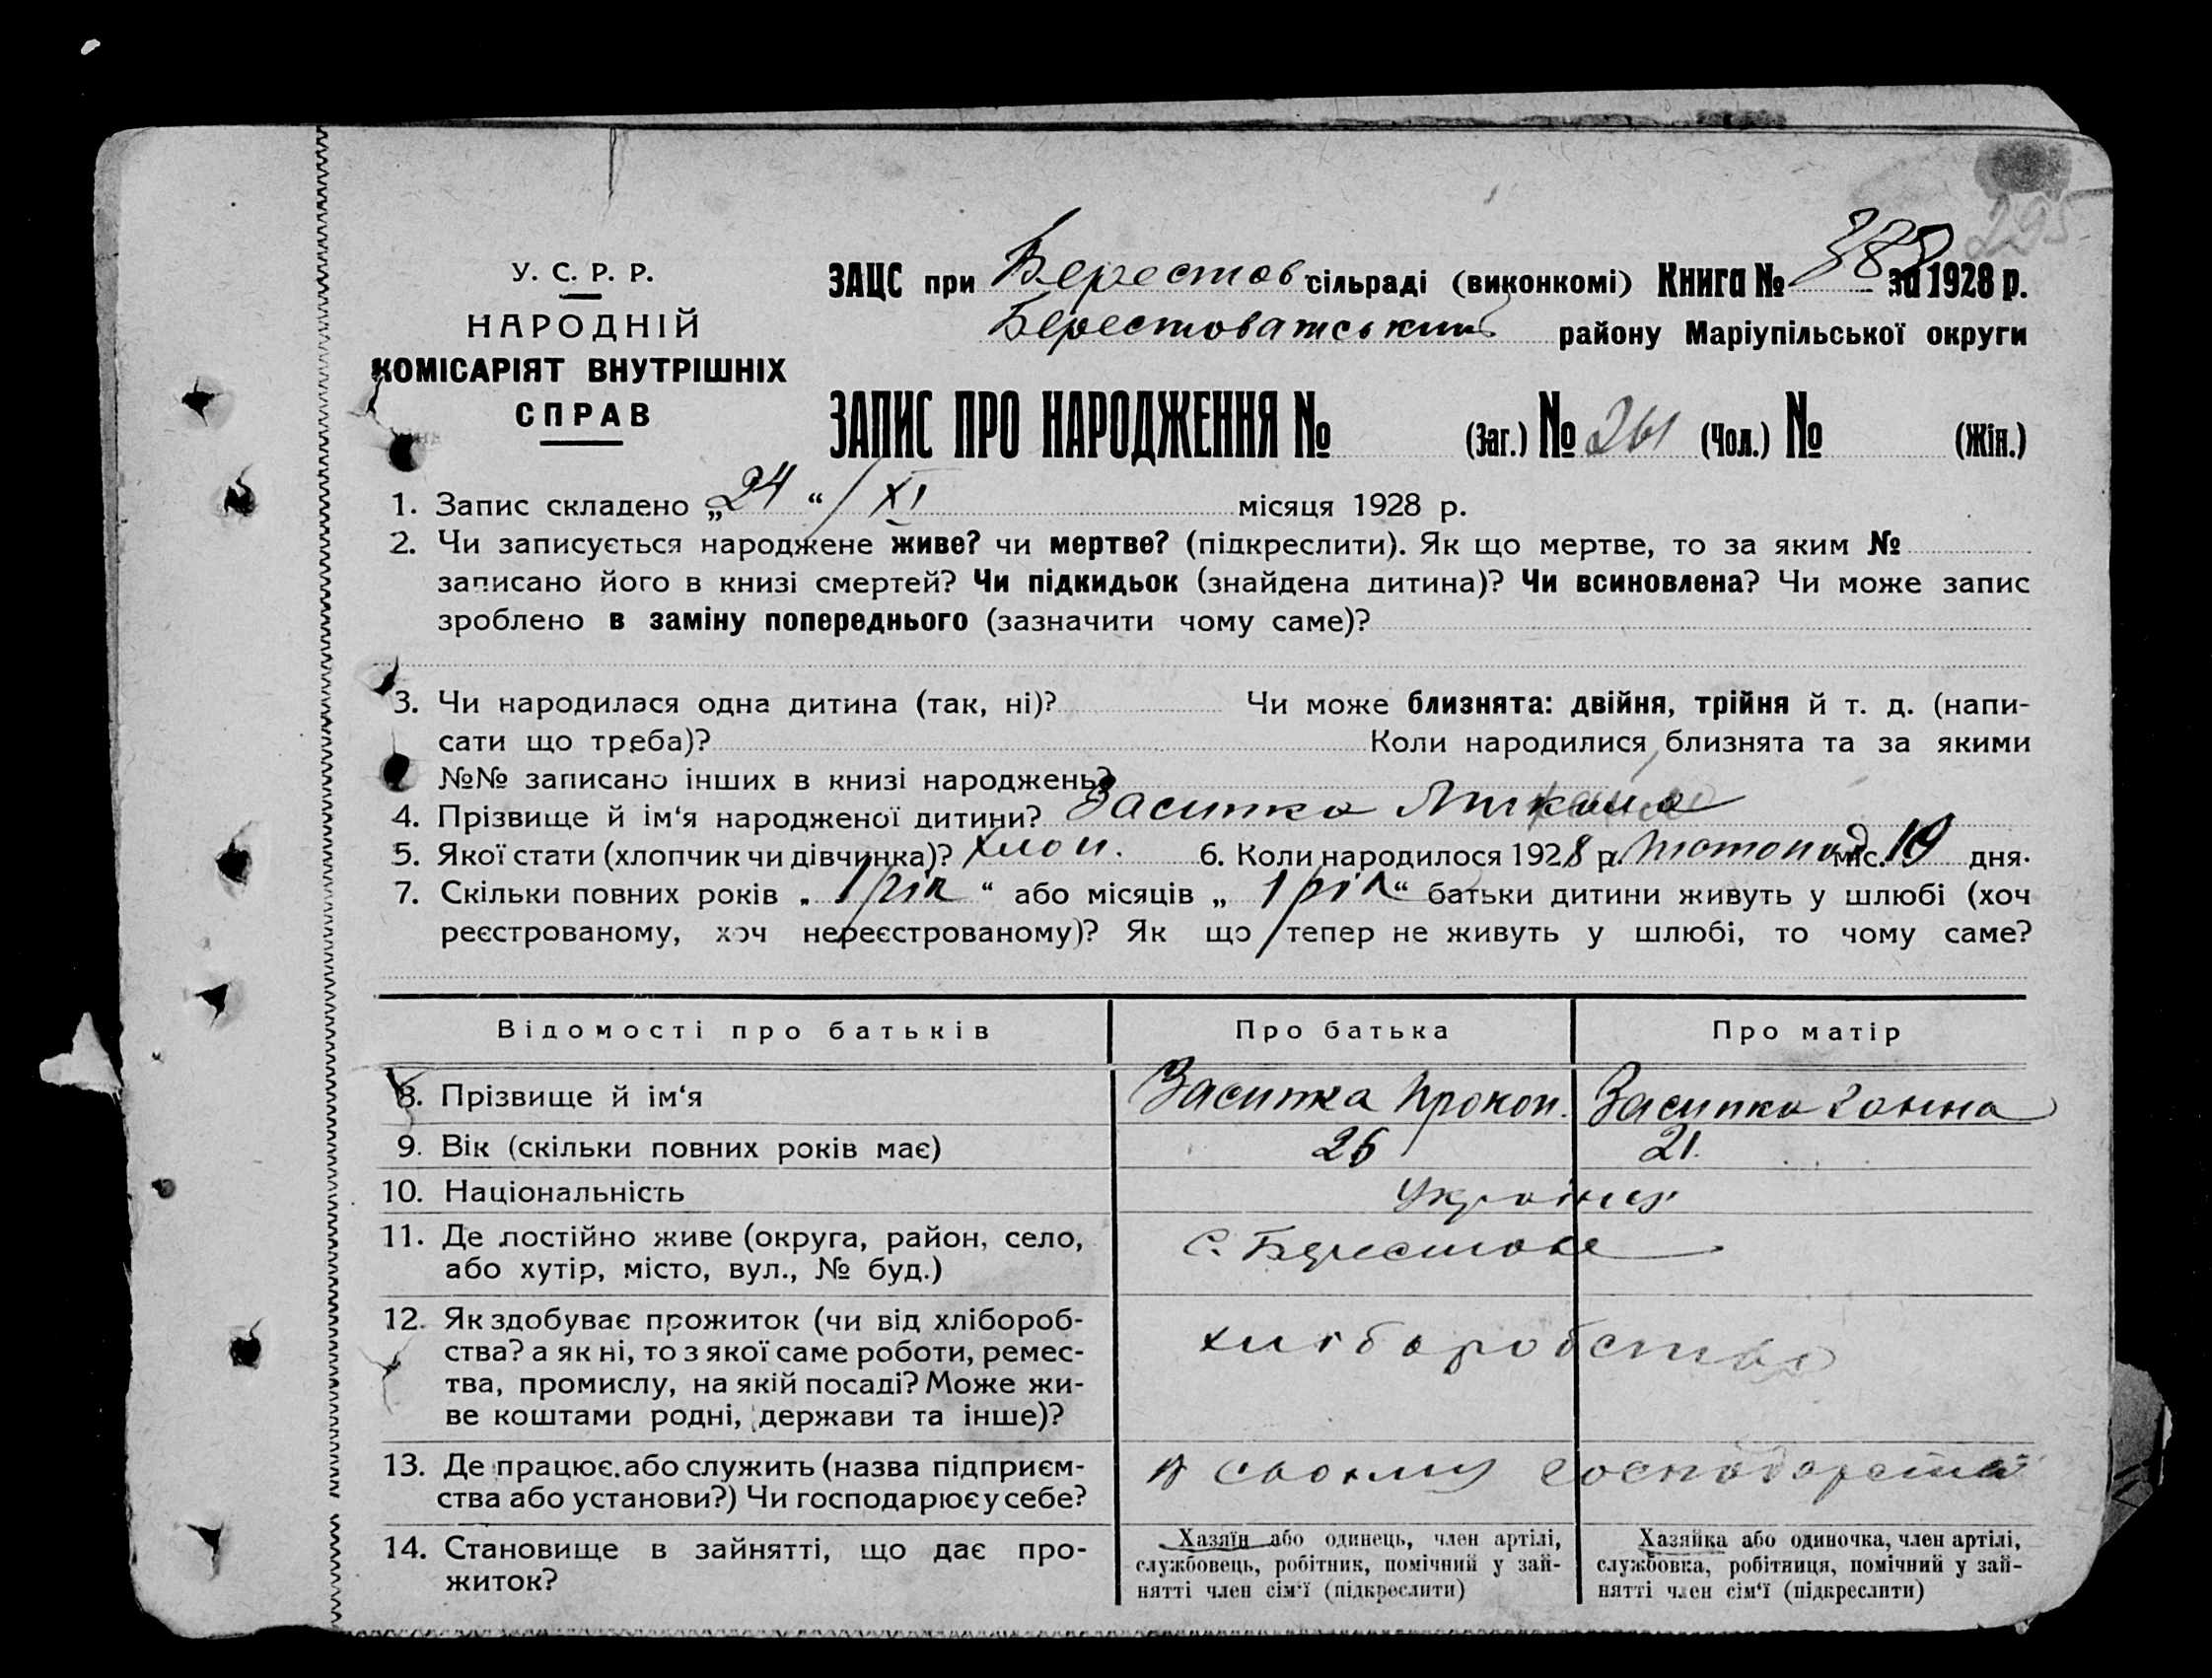 295
У. С. Р. Р.
НАРОДНІЙ
КОМІСАРІЯТ ВНУТРІШНІХ
СПРАВ
ЗАЦС при Берестов сільраді (виконкомі) Книга № 388 за 1928 р.
Берестоватський району Маріупільської округи
ЗАПИС ПРО НАРОДЖЕННЯ № (Заг.) № 261 (Чол.) № (Жін.)
1. Запис складено „24“ / XI місяця 1928 р.
2. Чи записується народжене живе? чи мертве? (підкреслити). Як що мертве, то за яким №
записано його в книзі смертей? Чи підкидьок (знайдена дитина)? Чи всиновлена? Чи може запис
зроблено в заміну попереднього (зазначити чому саме)?
3. Чи народилася одна дитина (так, ні)? Чи може близнята: двійня, трійня й т. д. (напи-
сати що треба)? Коли народилися близнята та за якими
№№ записано інших в книзі народжень?
4. Прізвище й ім‘я народженої дитини? Засипка
5. Якої стати (хлопчик чи дівчинка)? хлоп. 6. Коли народилося 1928 р. міс. 19 дня.
7. Скільки повних років „1 рік“ або місяців „1 рік“ батьки дитини живуть у шлюбі (хоч
реєстрованому, хоч нереєстрованому)? Як що тепер не живуть у шлюбі, то чому саме?
Відомості про батьків Про батька Про матір
8. Прізвище й ім‘я Засипка Прокоп. Засипка Ганна
9. Вік (скільки повних років має) 26 21.
10. Національність
11. Де постійно живе (округа, район, село,
або хутір, місто, вул., № буд.) с. Берестове
12. Як здобуває прожиток (чи від хлібороб-
ства? а як ні, то з якої саме роботи, ремес-
тва, промислу, на якій посаді? Може жи-
ве коштами родні, держави та інше)? хліборобство
13. Де працює або служить (назва підприєм-
ства або установи?) Чи господарює у себе? в своєму господарстві
14. Становище в зайнятті, що дає про-
житок?
Хазяїн або одинець, член артілі,
службовець, робітник, помічний у зай-
нятті член сім‘ї (підкреслити)
Хазяйка або одиночка, член артілі,
службовка, робітниця, помічний у зай-
нятті член сім‘ї (підкреслити)